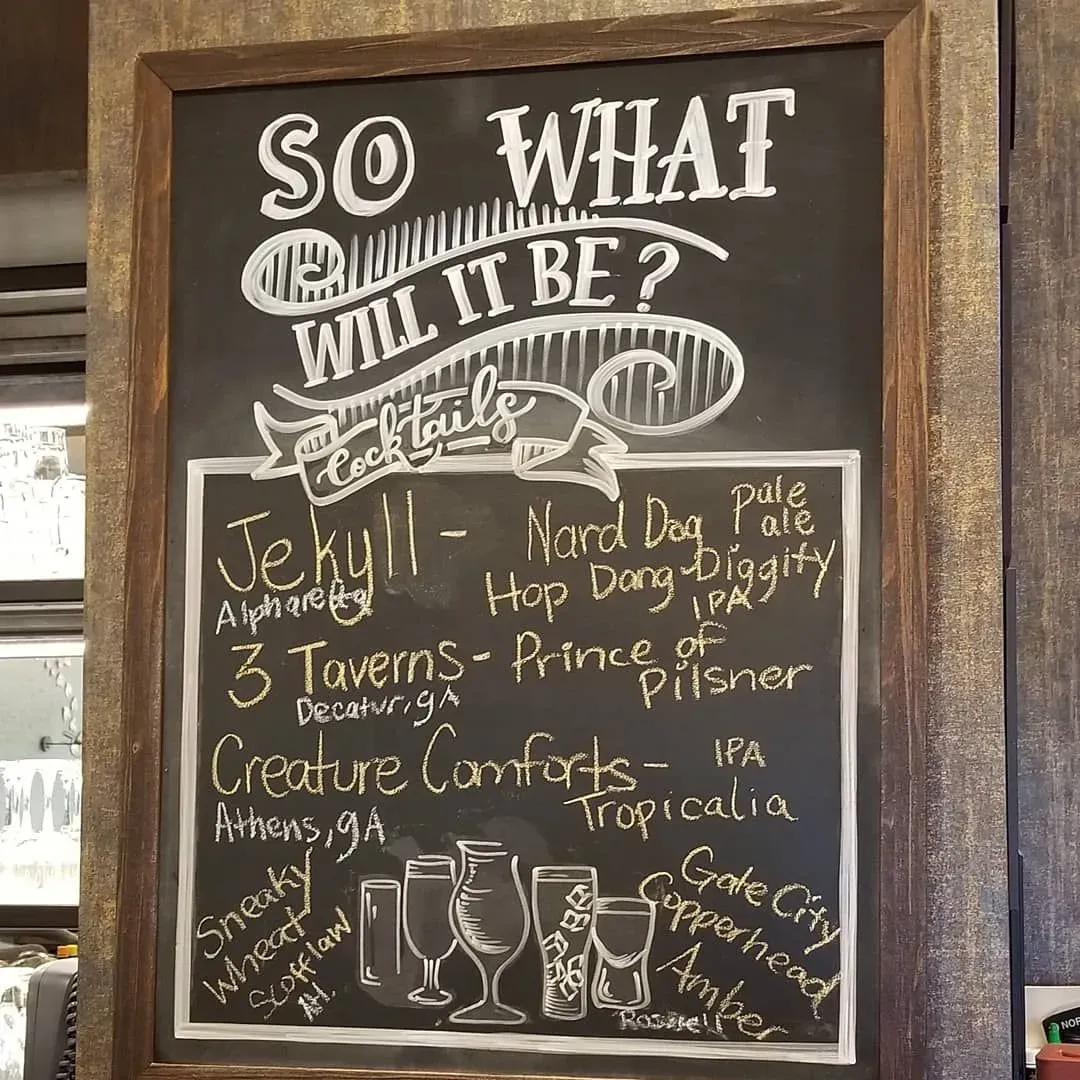 SO WHAT
WILL IT BE?
Cocktails
Jekyll - Nard Dog Pale ale
Alpharetta
Hop Dang-Diggity
IPA
3 Taverns - Prince of
Pilsner
Decatur, gA
Creature Comforts - IPA
Tropicalia
Athens, gA
Sneaky
Wheat
Scofflaw
Gate City
Copperhead
Amber
NOR